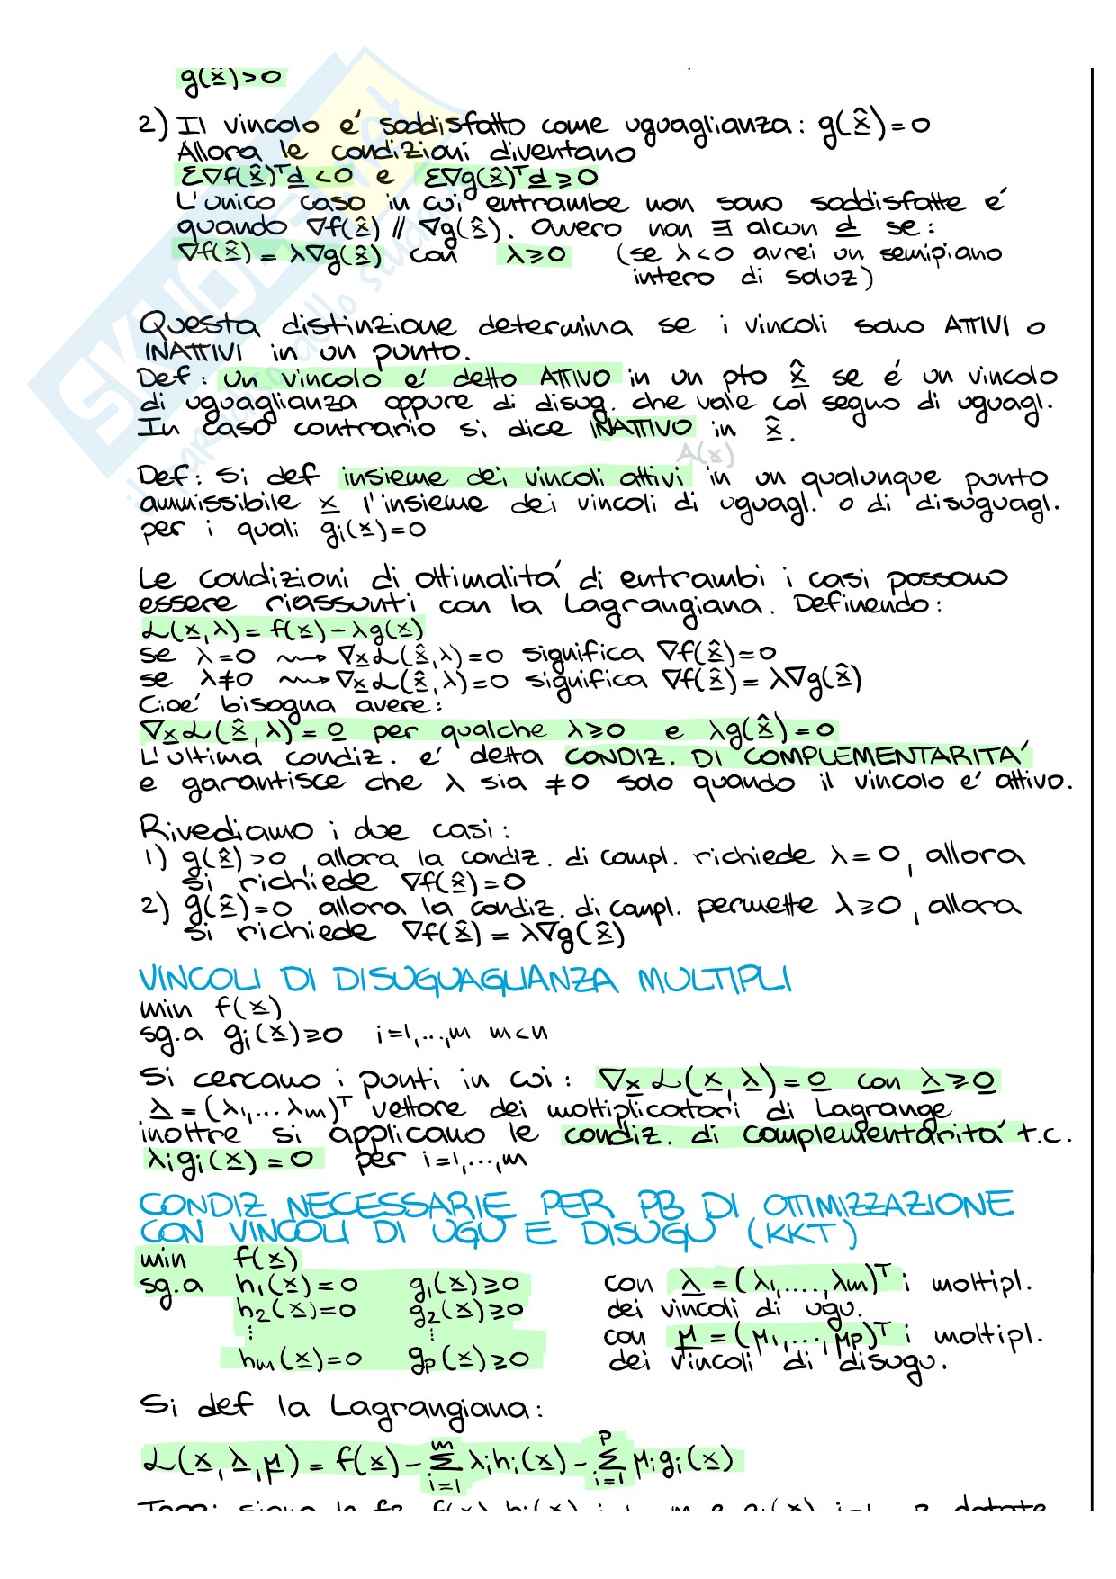 g(x̂)>0
2) Il vincolo e' soddisfatto come uguaglianza: g(x̂)=0
Allora le condizioni diventano
Ɛ∇f(x̂)ᵀd<0 e Ɛ∇g(x̂)ᵀd≥0
L'unico caso in cui entrambe non sono soddisfatte e'
quando ∇f(x̂) // ∇g(x̂). Ovvero non ∃ alcun d se:
∇f(x̂) = λ∇g(x̂) con λ≥0 (se λ<0 avrei un semipiano
intero di soluz)
Questa distinzione determina se i vincoli sono ATTIVI o
INATTIVI in un punto.
Def: Un vincolo e' detto ATTIVO in un pto x̂ se é un vincolo
di uguaglianza oppure di disug. che vale col segno di uguagl.
In caso contrario si dice INATTIVO in x̂.
A(x)
Def: Si def insieme dei vincoli attivi in un qualunque punto
ammissibile x l'insieme dei vincoli di uguagl. o di disuguagl.
per i quali gᵢ(x)=0
Le condizioni di ottimalitá di entrambi i casi possono
essere riassunti con la Lagrangiana. Definendo:
ℒ(x,λ)= f(x)-λg(x)
se λ=0 ⇝ ∇xℒ(x̂,λ)=0 significa ∇f(x̂)=0
se λ≠0 ⇝ ∇xℒ(x̂,λ)=0 significa ∇f(x̂)=λ∇g(x̂)
Cioe' bisogna avere:
∇xℒ(x̂,λ)=0 per qualche λ≥0 e λg(x̂)=0
L'ultima condiz. e' detta CONDIZ. DI COMPLEMENTARITA'
e garantisce che λ sia ≠0 solo quando il vincolo e' attivo.
Rivediamo i due casi:
1) g(x̂)>0, allora la condiz. di compl. richiede λ=0, allora
si richiede ∇f(x̂)=0
2) g(x̂)=0 allora la condiz. di compl. permette λ≥0, allora
si richiede ∇f(x̂)=λ∇g(x̂)
VINCOLI DI DISUGUAGLIANZA MULTIPLI
min f(x)
sg.a gᵢ(x)≥0 i=1,...,m m<n
Si cercano i punti in cui: ∇xℒ(x,λ)=0 con λ≥0
λ=(λ₁,...λm)ᵀ vettore dei moltiplicatori di Lagrange
inoltre si applicano le condiz. di complementaritá t.c.
λᵢgᵢ(x)=0 per i=1,...,m
CONDIZ NECESSARIE PER PB DI OTTIMIZZAZIONE
CON VINCOLI DI UGU E DISUGU (KKT)
min f(x)
sg.a h₁(x)=0 g₁(x)≥0 con λ=(λ₁,....,λm)ᵀ i moltipl.
h₂(x)=0 g₂(x)≥0 dei vincoli di ugu.
⋮ ⋮ con μ=(μ₁,...,μp)ᵀ i moltipl.
hm(x)=0 gp(x)≥0 dei vincoli di disugu.
Si def la Lagrangiana:
ℒ(x,λ,μ)= f(x)-∑ᵢ₌₁ᵐ λᵢhᵢ(x)-∑ᵢ₌₁ᵖ μᵢgᵢ(x)